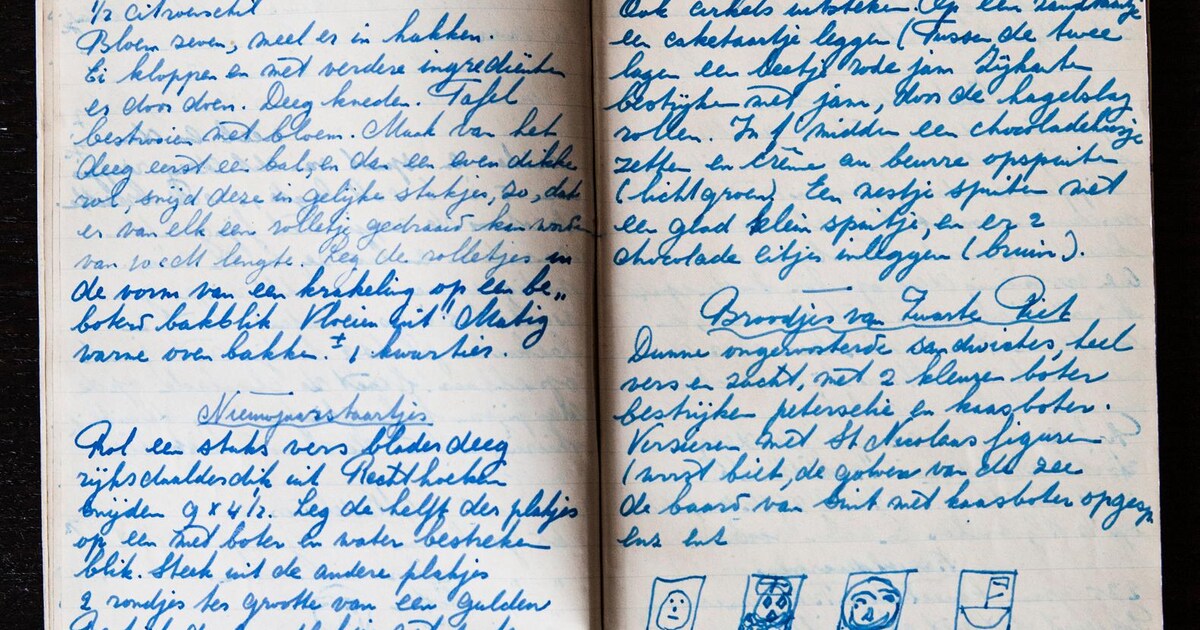 1/2 citroenschil
Bloem zeven, meel er in hakken.
Ei kloppen en met verdere ingrediënten
er door doen. Deeg kneden. Tafel
bestrooien met bloem. Maak van het
deeg eerst een bal, en dan een even dikke
rol, snijd deze in gelijke stukjes, zo, dat
er van elk een rolletje gedraaid kan worden
van 10 cM lengte. Leg de rolletjes in
de vorm van een krakeling op een be„
boterd bakblik. Vloeien uit! Matig
warme oven bakken. ± 1 kwartier.
Nieuwjaarstaartjes
Rol een stuks vers bladerdeeg
rijksdaalderdik uit Rechthoeken
snijden 9 x 4 1/2. Leg de helft der plakjes
op een met boter en water bestreken
blik. Steek uit de andere plakjes
2 rondjes ter grootte van een gulden
Ook cirkels uitsteken Op een zandtaartje
een caketaartje leggen (Tussen de twee
lagen een beetje rode jam Zijkanten
bestrijken met jam, door de hagelslag
rollen. In 't midden een chocoladekuisje
zetten en crême au beurre opspuiten
(lichtgroen) Een nestje spuiten met
een glad klein spuitje, en er 2
chocolade eitjes inleggen (bruin).
Broodjes van Zwarte Piet
Dunne ongeroosterde sandwiches, heel
vers en zacht, met 2 kleuren boter
bestrijken peterselie en kaasboter.
Versieren met St Nicolaas figuren
(worst biet, de golven van de zee
de baard van Sint met kaasboter opgesp
enz enz